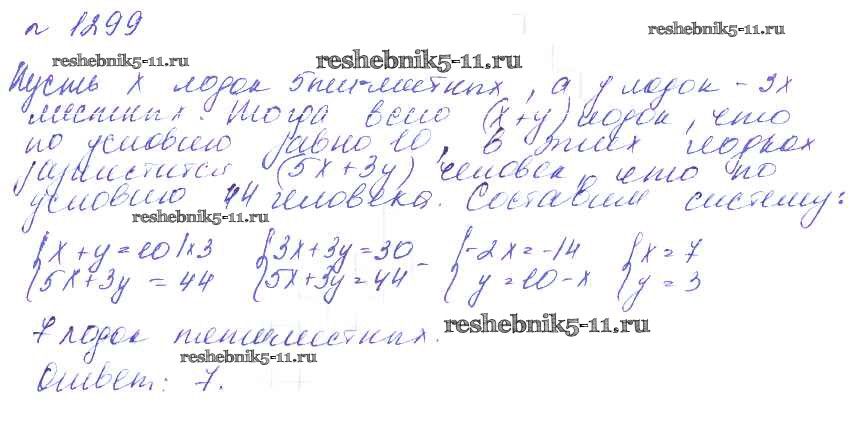 № 1299
reshebnik5-11.ru
reshebnik5-11.ru
reshebnik5-11.ru
Пусть x лодок 5ти-местных, а y лодок - 3х
местных. Тогда всего (x+y) лодок, что
по условию равно 10, в этих лодках
разместится (5x+3y) человек, что по
условию 44 человека. Составим систему:
reshebnik5-11.ru
{x+y=10 |x3 {3x+3y=30 {-2x=-14 {x=7
{5x+3y=44 {5x+3y=44 - {y=10-x {y=3
reshebnik5-11.ru
7 лодок пятиместных.
reshebnik5-11.ru
Ответ: 7.